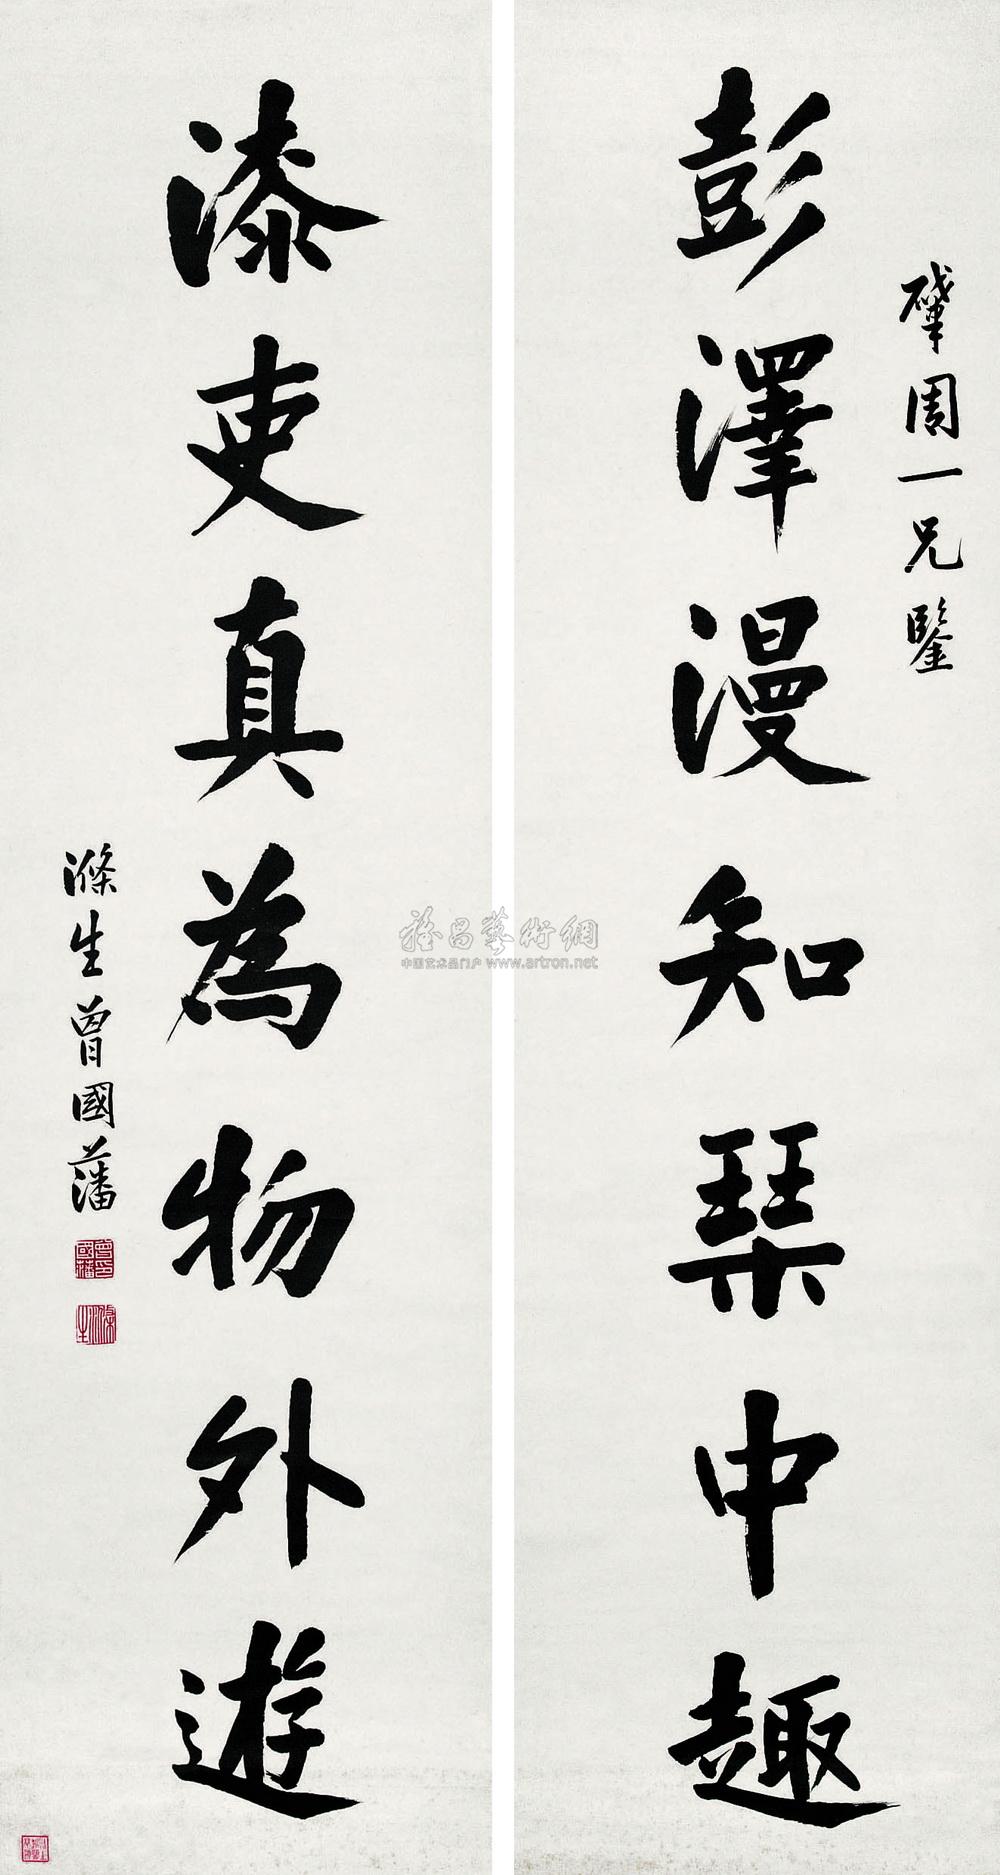 肇周一兄鑒
彭澤漫知琴中趣
漆吏真為物外遊
滌生曾國藩
雅昌藝術網
中国艺术品门户 www.artron.net